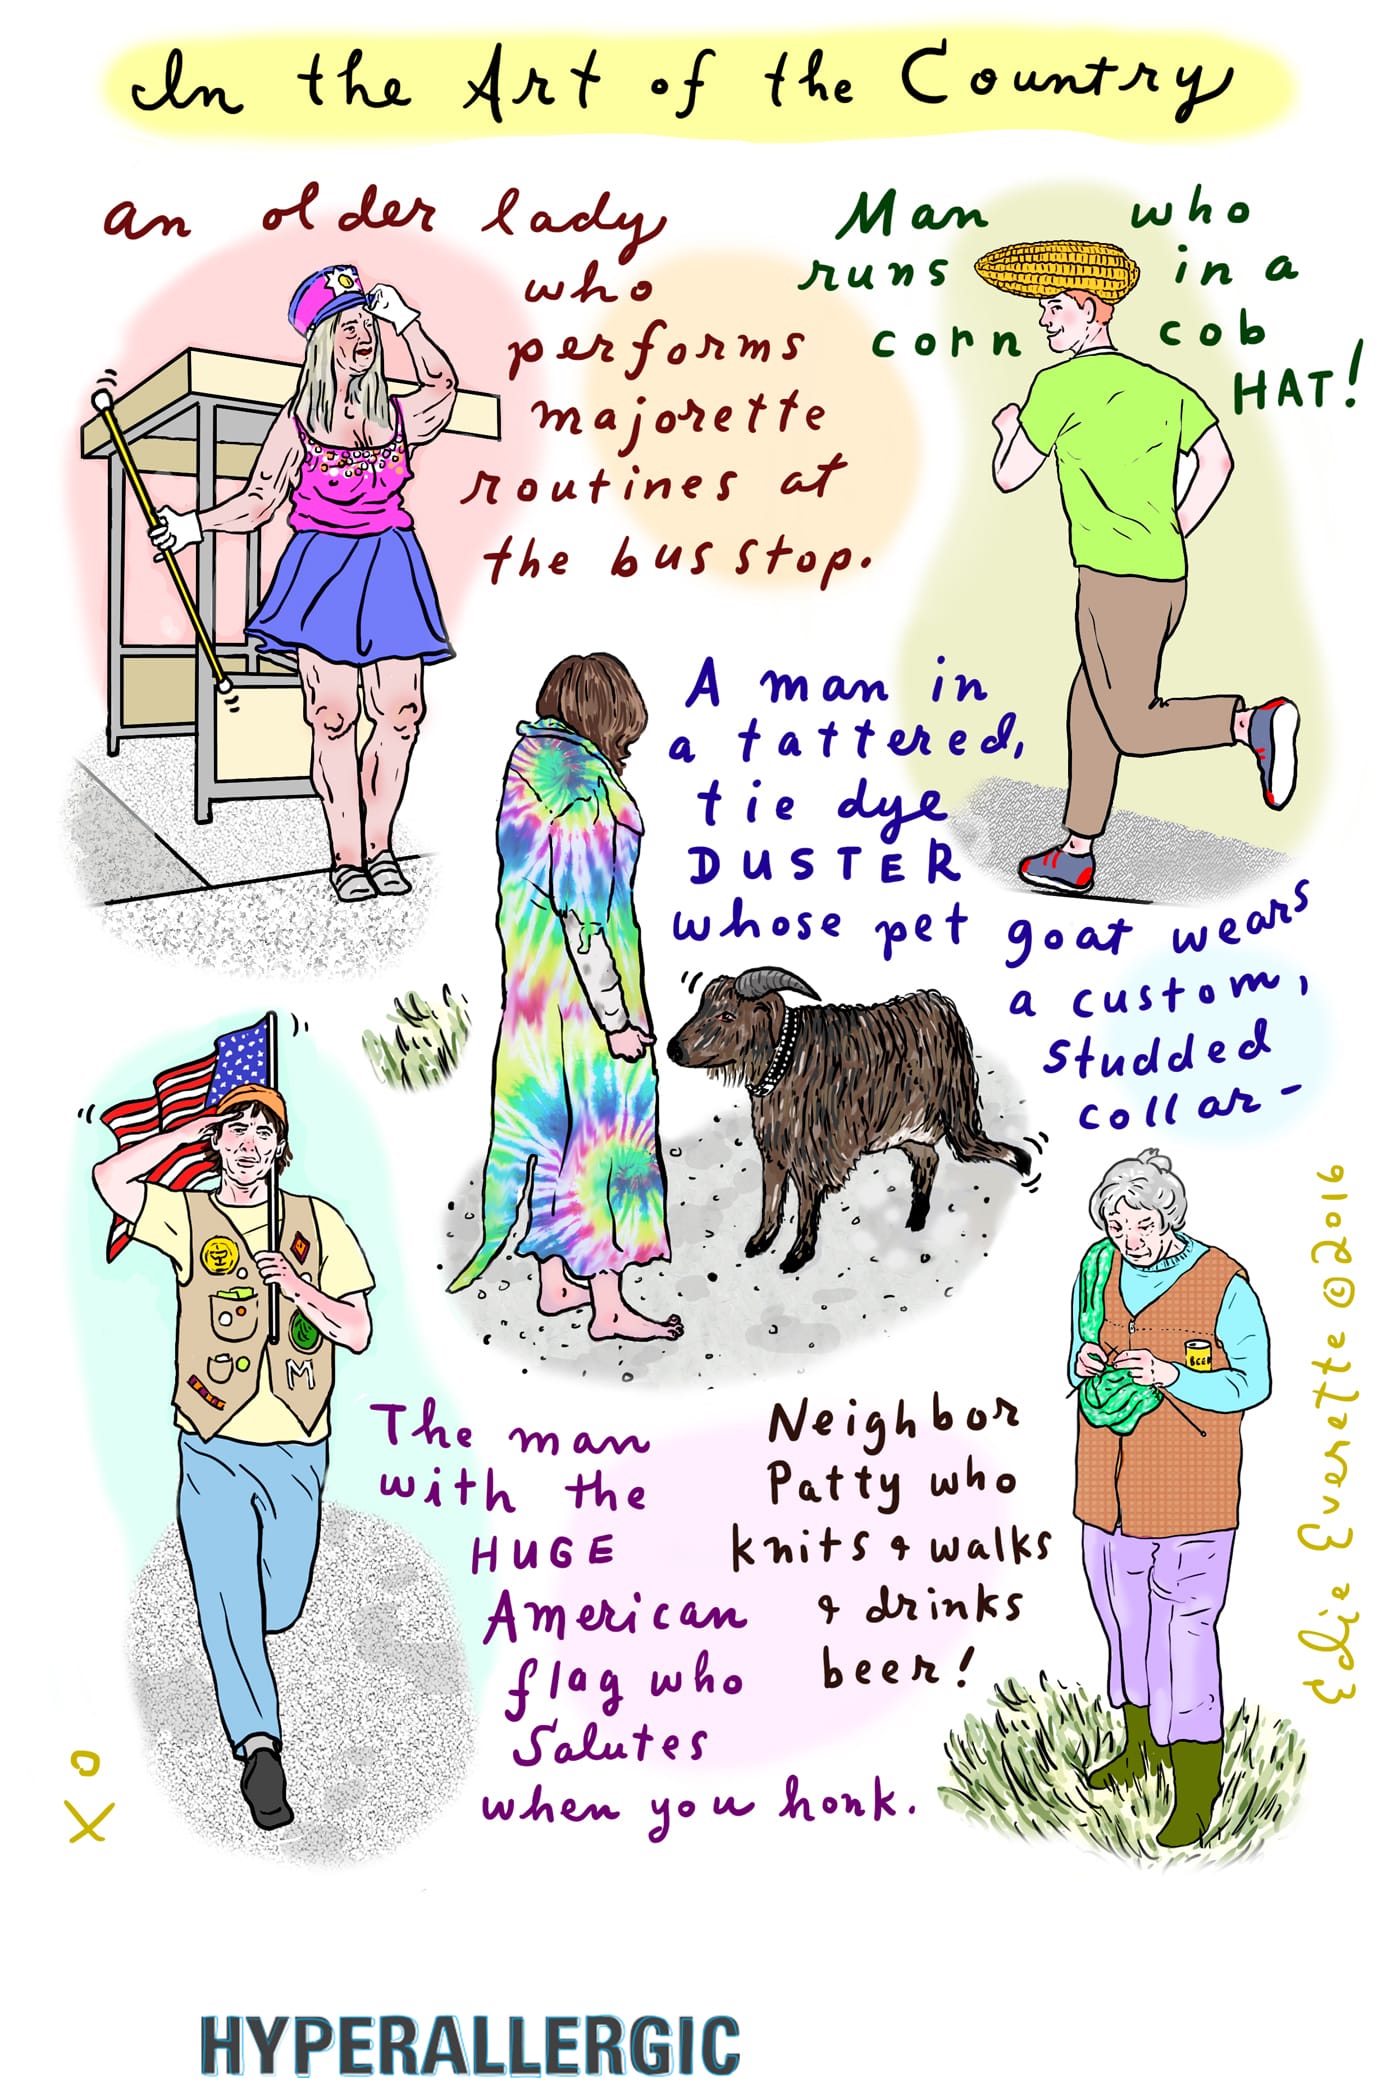 In the Art of the Country
an older lady
who
performs
majorette
routines at
the bus stop.
Man who
runs in a
corn cob
HAT!
A man in
a tattered,
tie dye
DUSTER
whose pet goat wears
a custom,
studded
collar-
The man
with the
HUGE
American
flag who
Salutes
when you honk.
M
Neighbor
Patty who
knits & walks
& drinks
beer!
BEER
Edie Everette © 2016
XO
HYPERALLERGIC